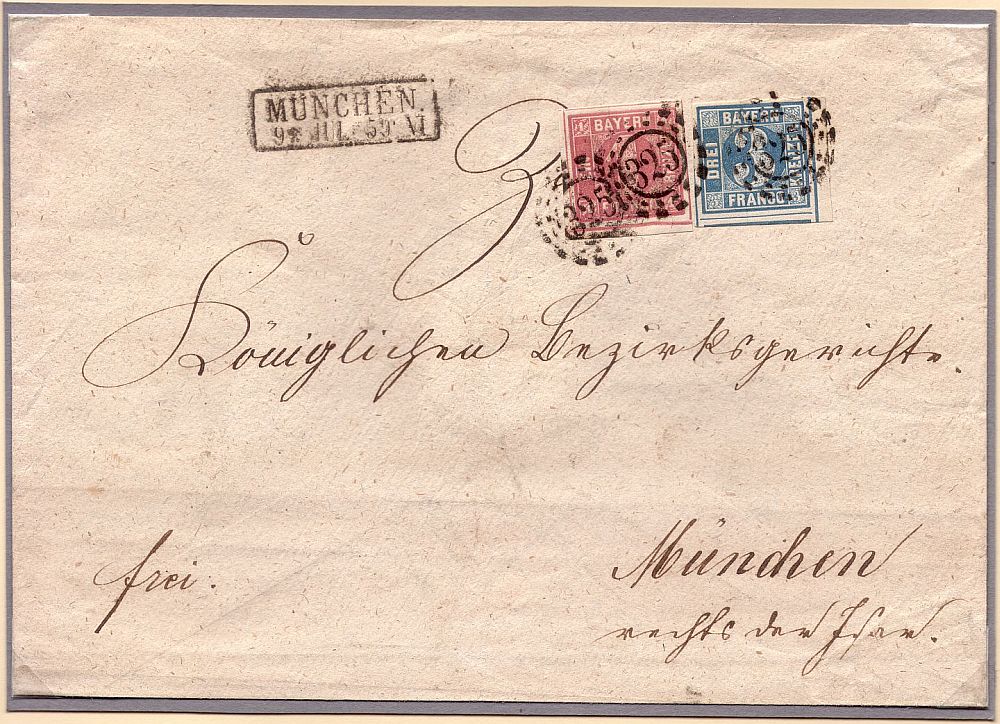 MÜNCHEN.
9 JUL. 59. VI
BAYERN
325
325
BAYERN
DREI
3
KREUZER
FRANCO
325
Z
Königlichen Bezirksgerichte.
frei.
München
rechts der Isar.